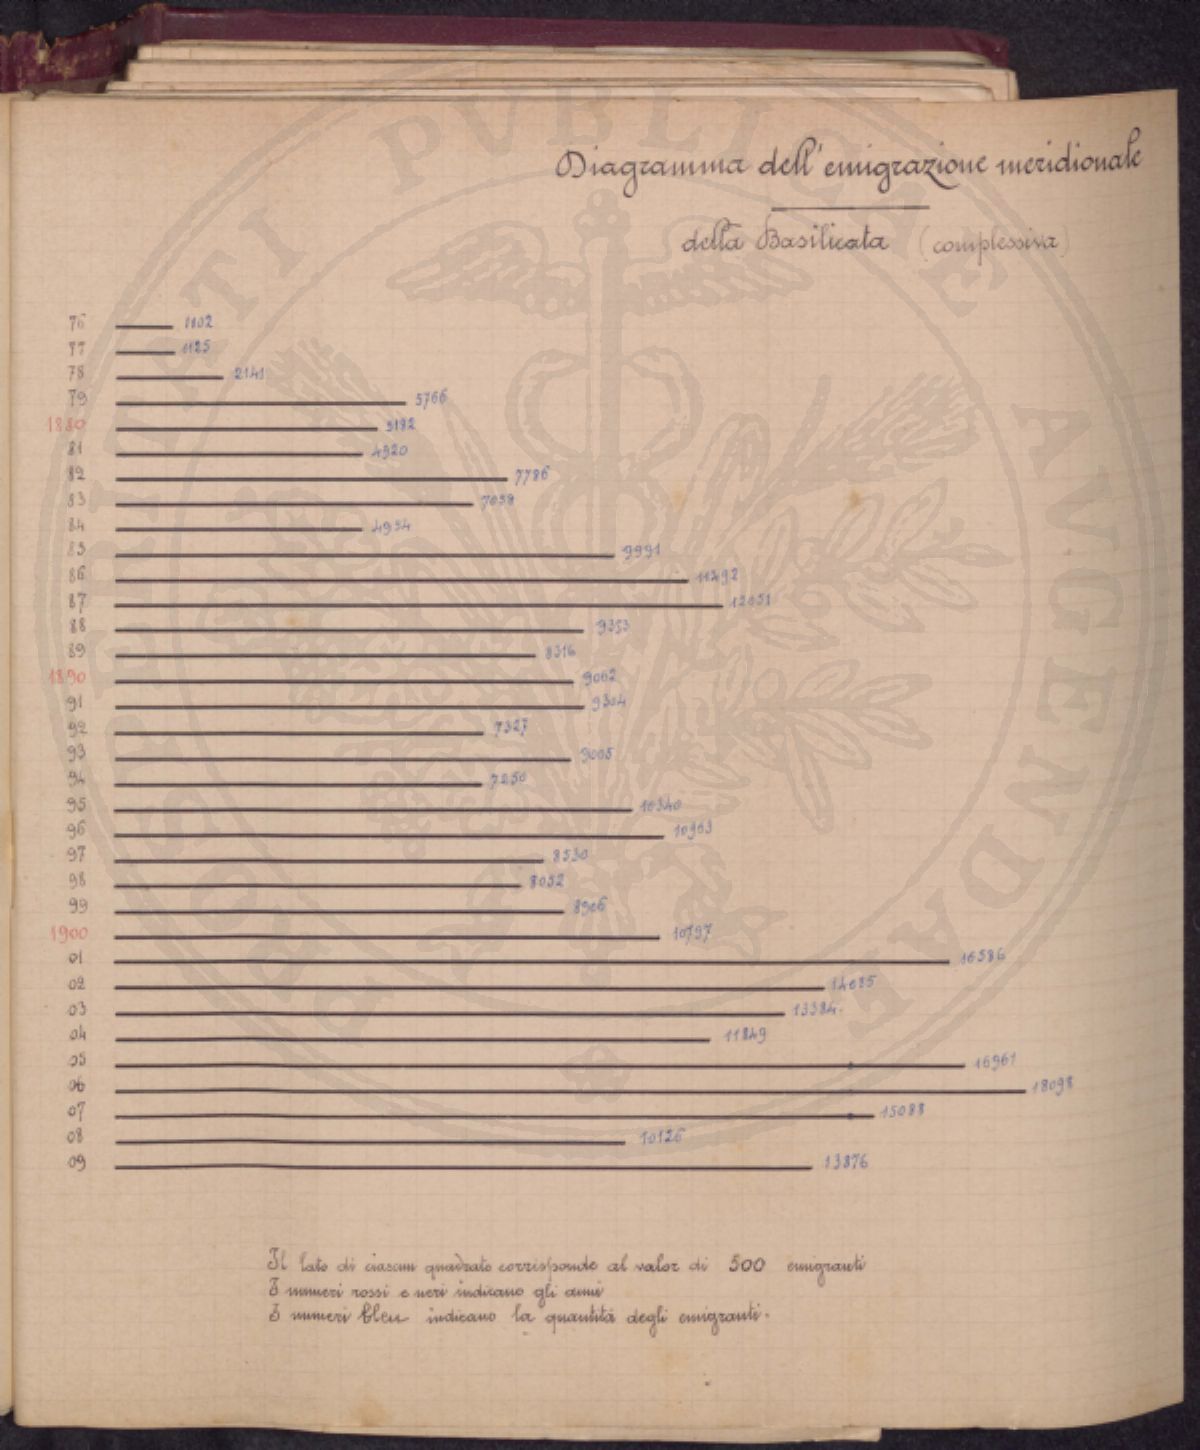 Diagramma dell'emigrazione meridionale
della Basilicata (complessiva)
76 1102
77 1125
78 2141
79 5766
1880 5192
81 4920
82 7786
83 7058
84 4954
85 9991
86 11492
87 12051
88 9353
89 8316
1890 9062
91 9304
92 7327
93 9005
94 7250
95 10340
96 10963
97 8530
98 8052
99 8906
1900 10797
01 16586
02 14085
03 13384
04 11849
05 16961
06 18098
07 15088
08 10126
09 13876
Il lato di ciascun quadrato corrisponde al valor di 500 emigranti
I numeri rossi e neri indicano gli anni
I numeri bleu indicano la quantità degli emigranti.
PVBLICAE
AVGENDAE